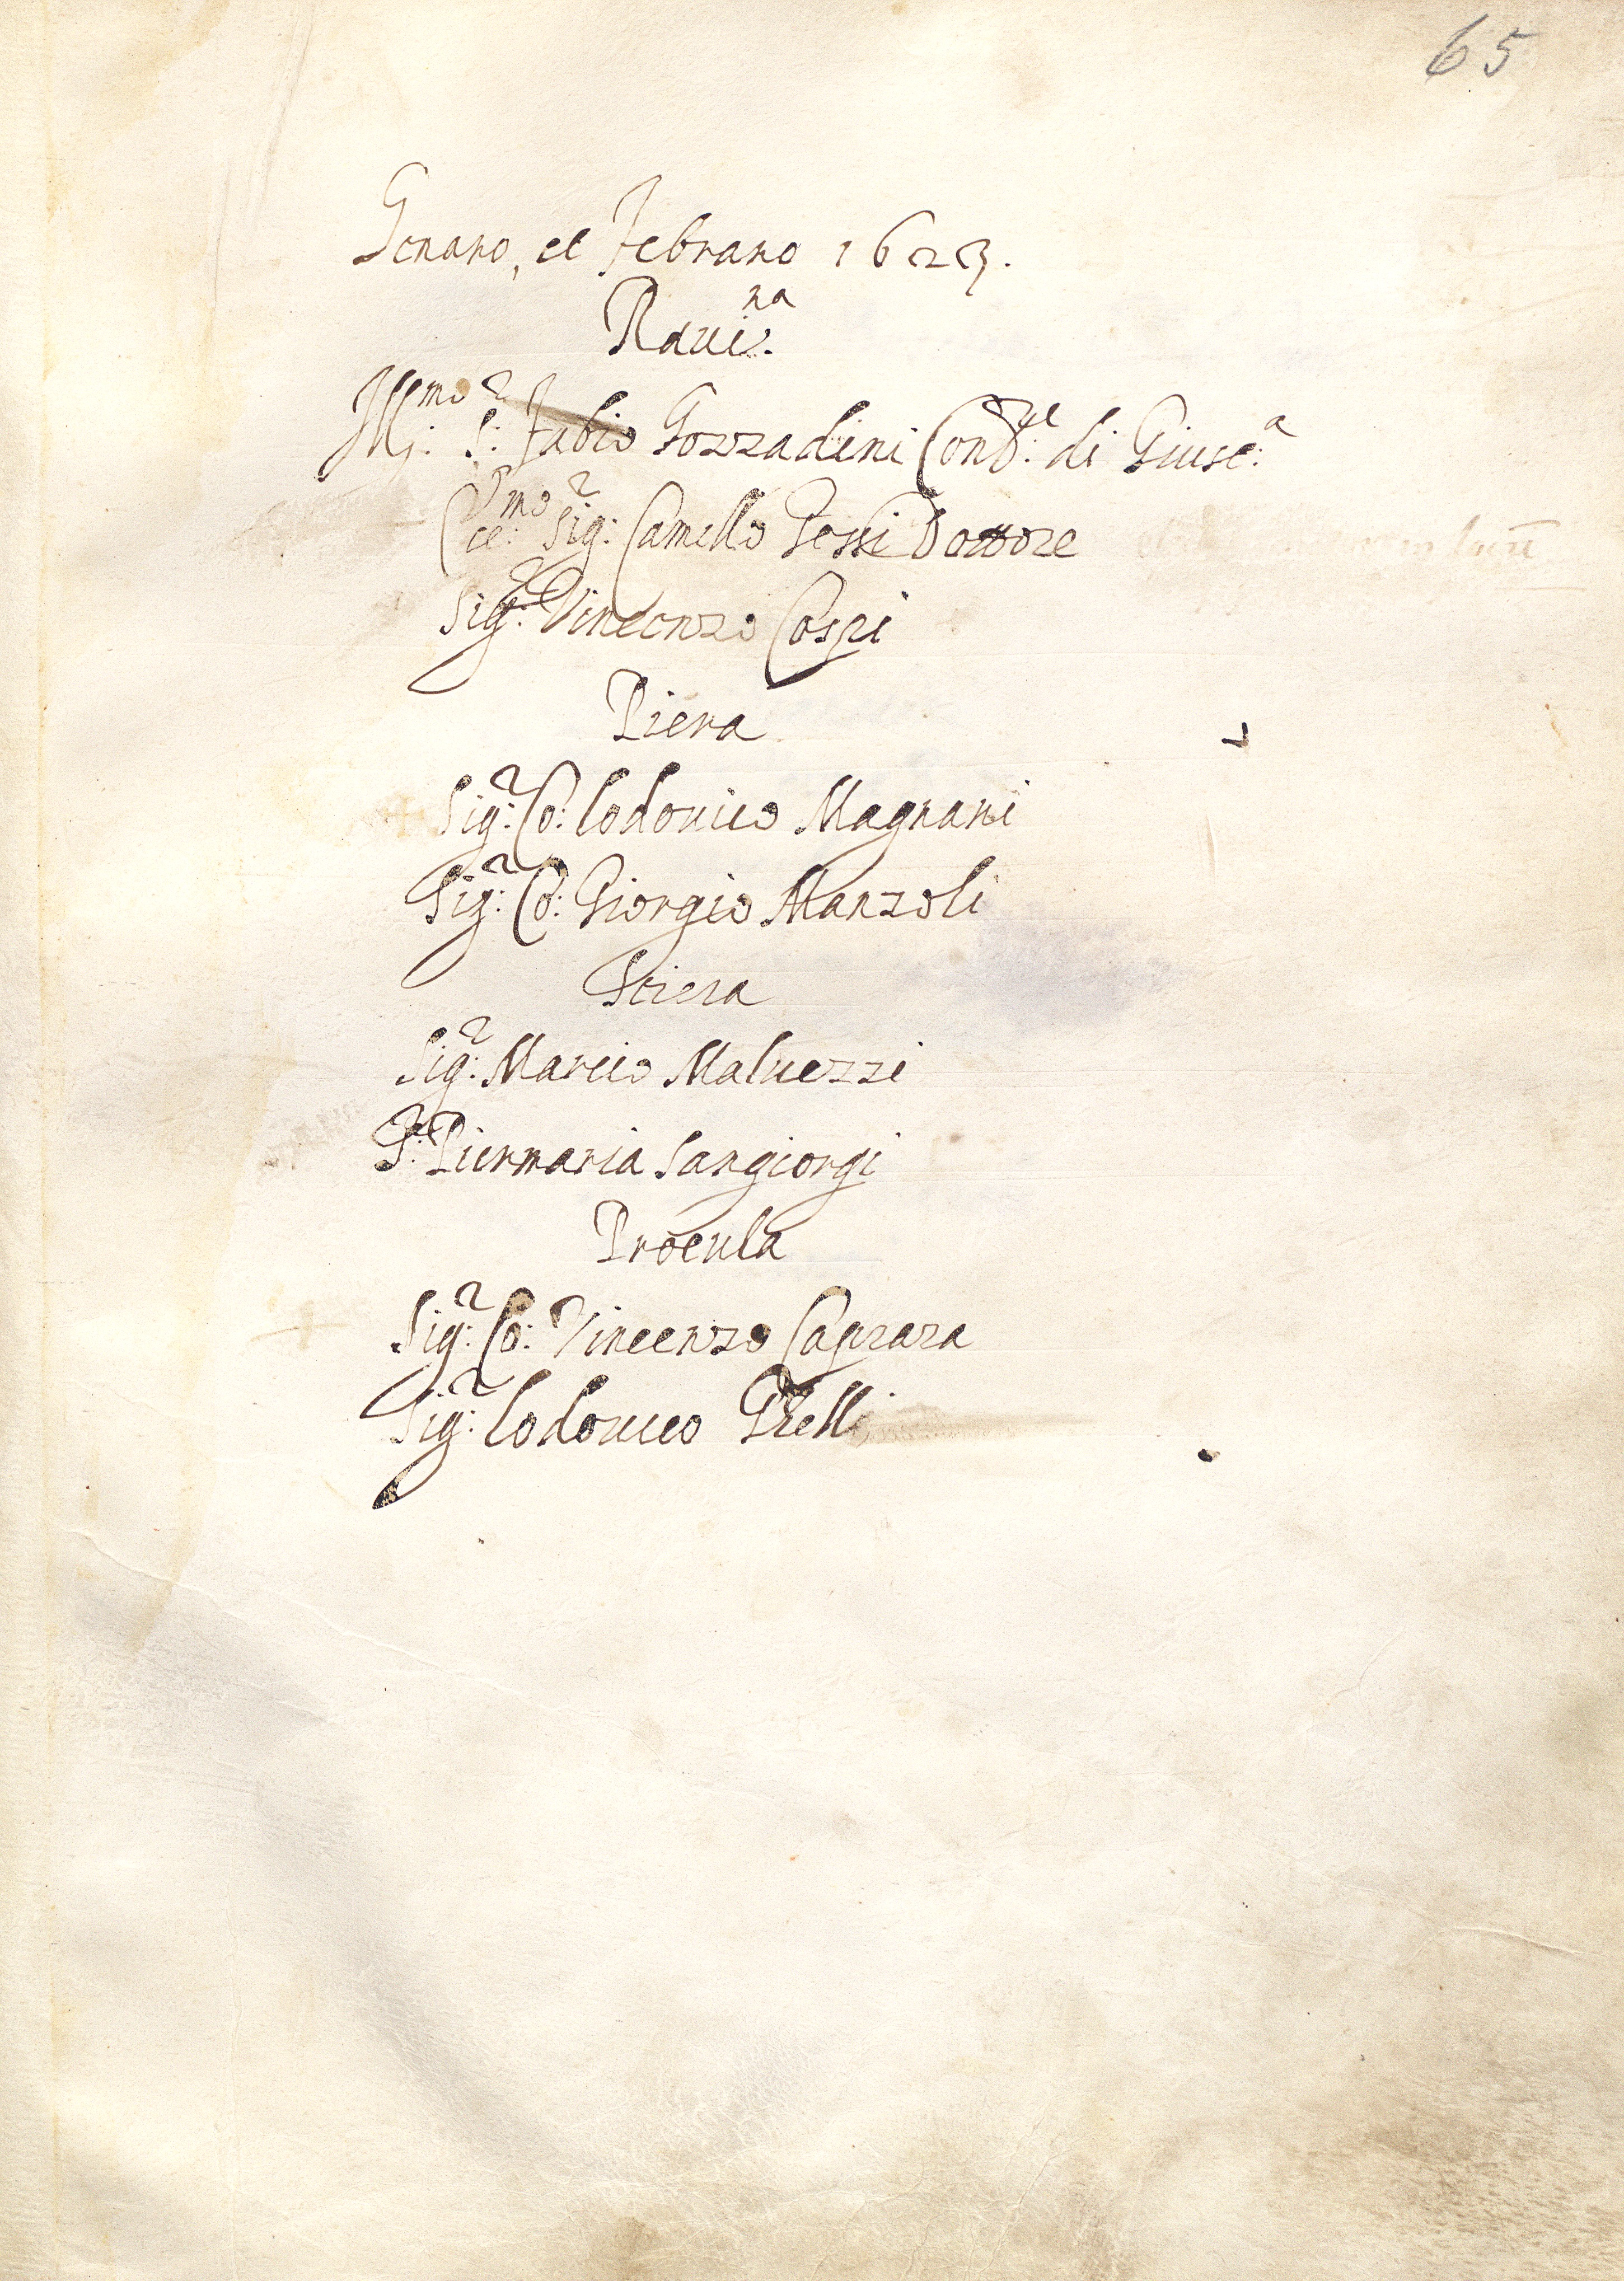 65
Genaro, et Febraro 1623.
Raui:na
Ill:mo S:r Fabio Gozzadini Conf:re di Giust:a
Ecc:mo Sig:r Camillo Gessi Dottore
Sig:r Vincenzo Cospi
Piera
Sig:r Co: Lodouico Magnani
Sig:r Co: Giorgio Manzoli
Stiera
Sig:r Marcio Maluezzi
S:r Piermaria Sangiorgi
Procula
Sig:r Co: Vincenzo Caprara
Sig:r Lodouico